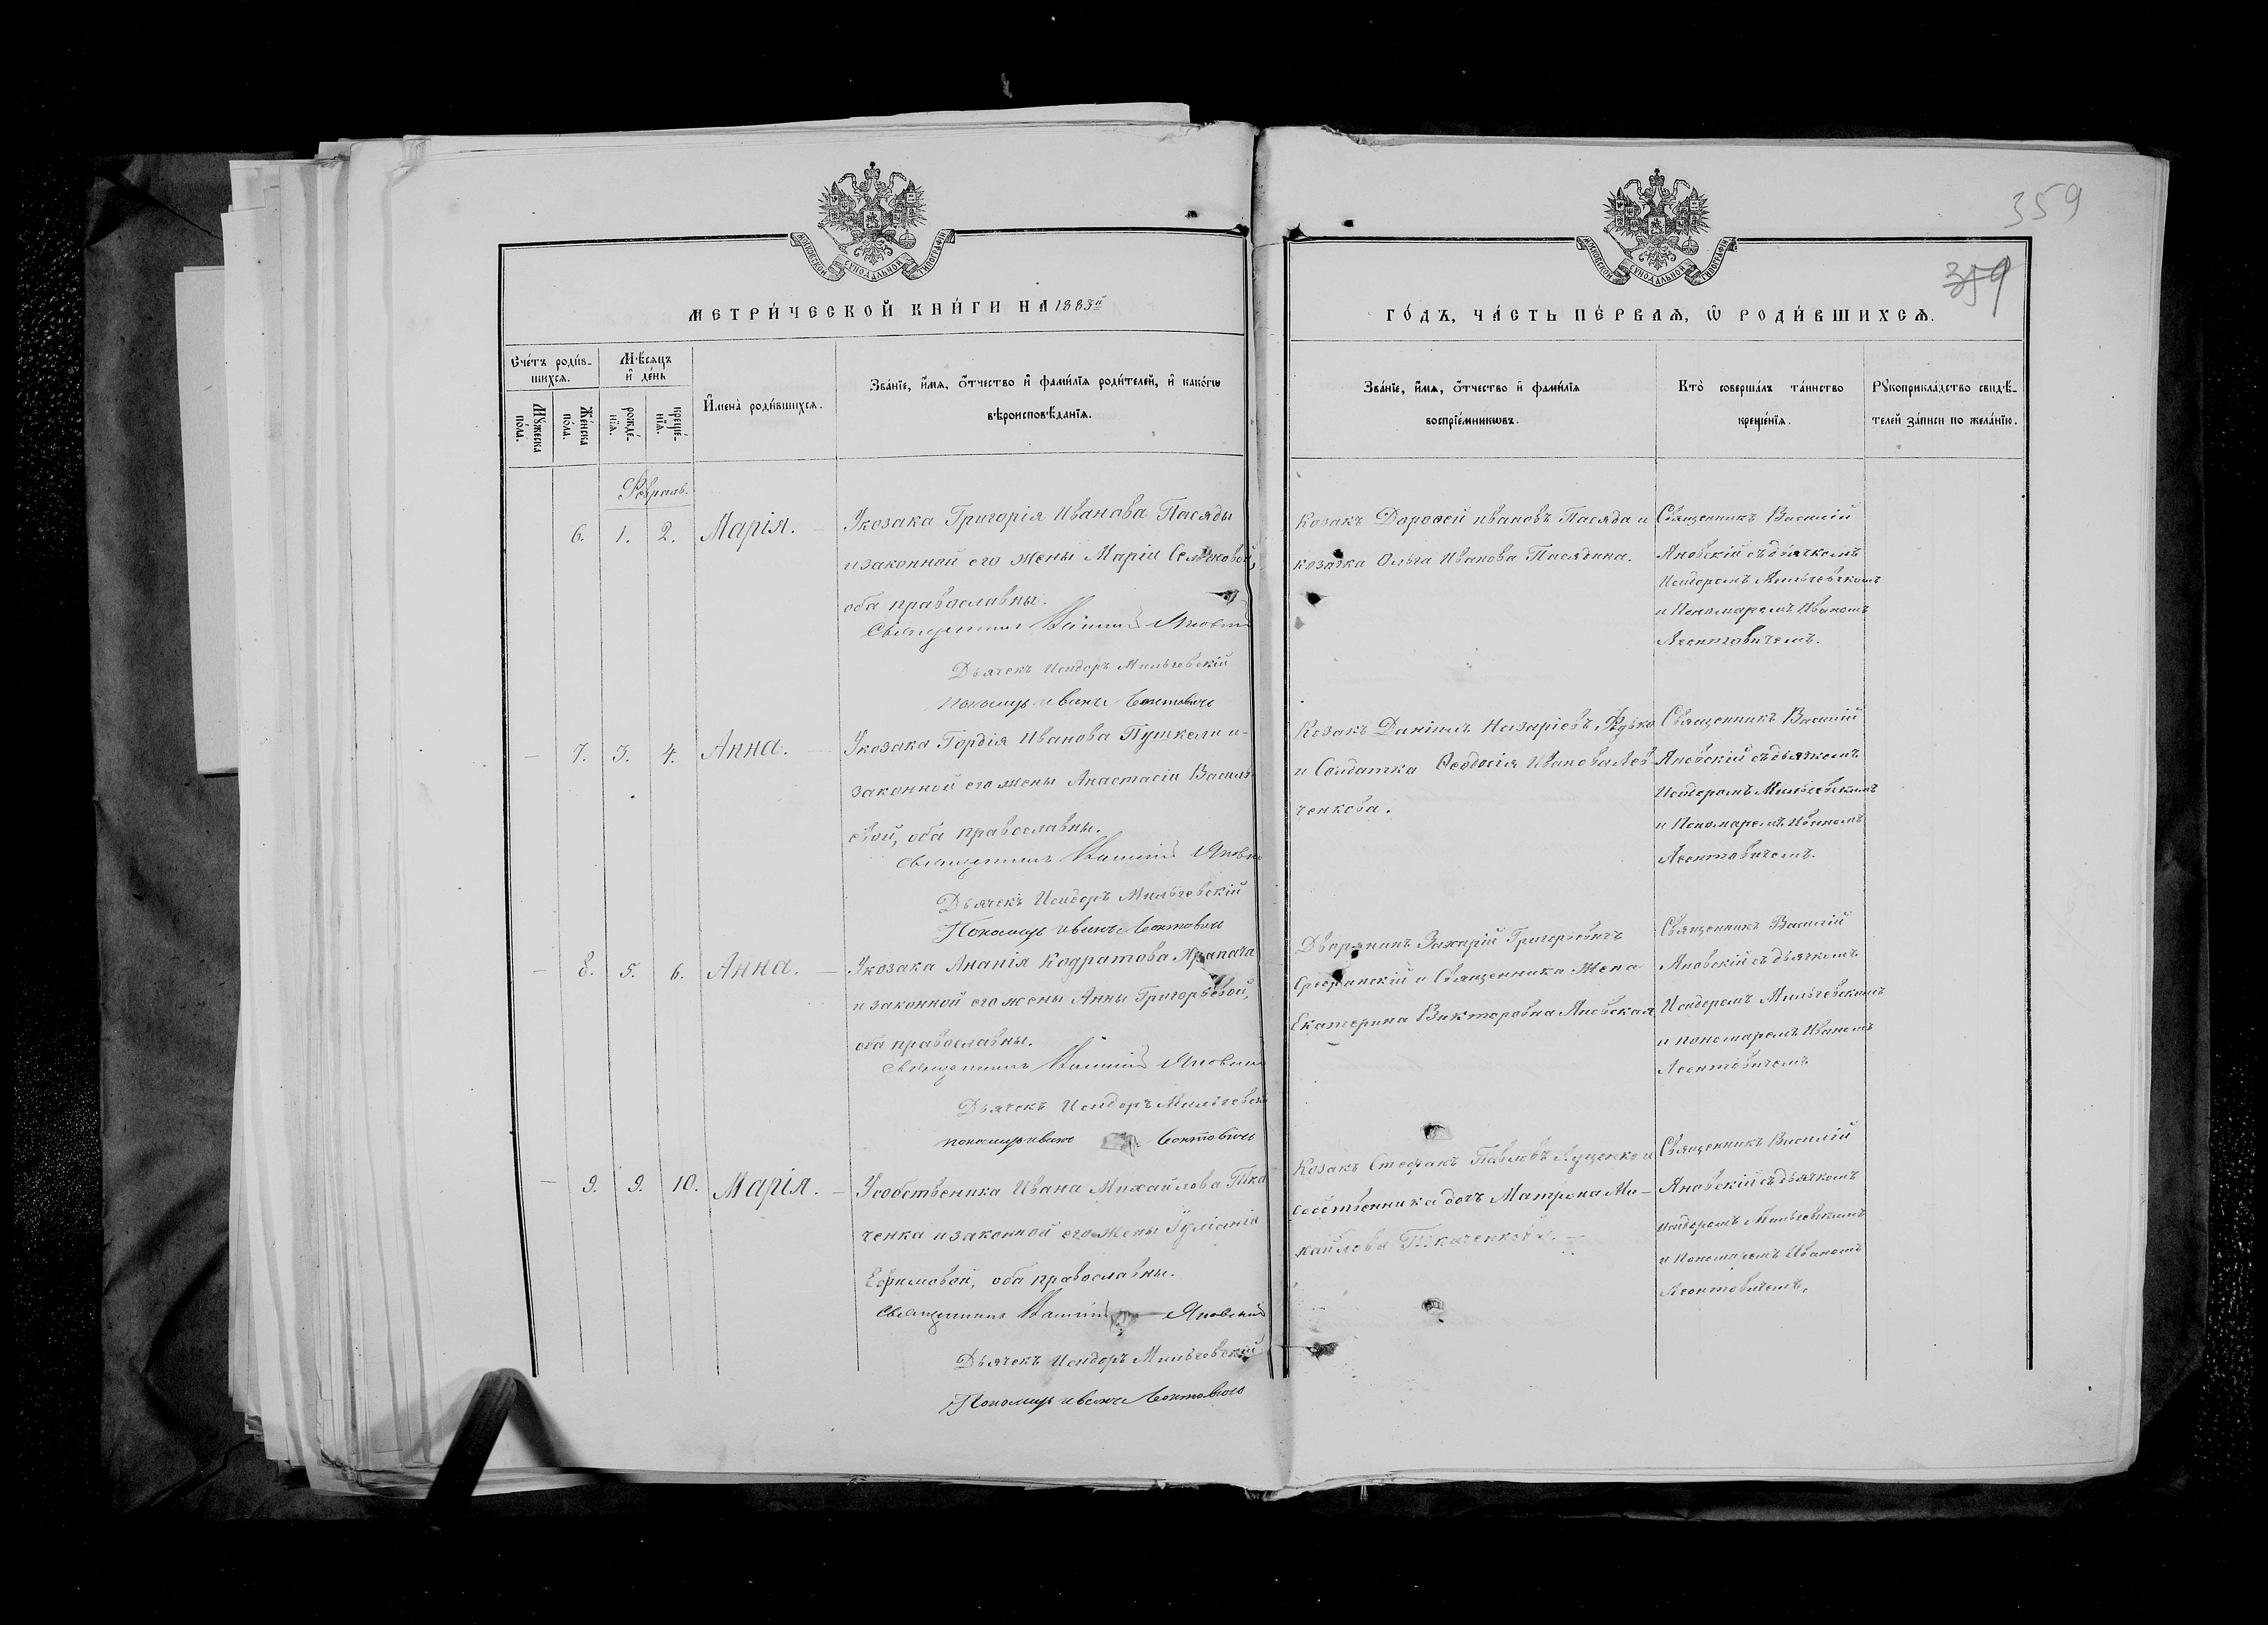 359
МОСКОВСКОЙ СУНОДАЛЬНОЙ ТИПОГРАФІИ
МЕТРИ́ЧЕСКОЙ КНИ́ГИ НА 1883й
Сче́тъ роди́в-
шихся.
Мѣсяцъ
и҆ де́нь
Мꙋ́жеска
по́ла.
Же́нска
по́ла.
рожде́-
нїя.
креще́-
нїя.
И҆мена̀ роди́вшихся.
Зва́нїе, и҆́мя, ѻ҆́тчество и҆ фами́лїя роди́телей, и҆ како́гѡ
вѣроисповѣ́данїя.
Февраль.
6.
1.
2.
Марія.
У козака Григорія Иванова Пасяды
и законной его жены Маріи
оба православны.
Священникъ Василий Яновскій
Дьячекъ Исидоръ Мильчевскій
Пономарь Иванъ Леонтовичъ
7.
3.
4.
Анна.
У козака Гордія Иванова Пушкели и
законной его жены Анастасіи Василь-
евой, оба православны.
Священникъ Василий
Дьячекъ Исидоръ Мильчевскій
Пономарь Иванъ Леонтовичъ
8.
5.
6.
Анна.
У козака Ананія Кодратова
и законной его жены Анны Григорьевой,
оба православны.
Священникъ Василий
Дьячекъ Исидоръ
пономарь Иванъ Леонтовичъ
9.
9.
10.
Марія.
У собственика Ивана Михайлова Тка
ченка и законной его жены Іуліаніи
Ефимовой, оба православны.
Священникъ Василий Яновский
Дьячекъ Исидоръ Мильчевскій
Пономарь Иванъ Леонтовичъ
МОСКОВСКОЙ СУНОДАЛЬНОЙ ТИПОГРАФІИ
359
ГО́ДЪ, ЧА́СТЬ ПЕ́РВАЯ, Ѡ҆ РОДИ́ВШИХСЯ.
Зва́нїе, и҆́мя, ѻ҆́тчество и҆ фами́лїя
воспрїе́мникѡвъ.
Кто̀ соверша́лъ та́инство
креще́нїя.
Рꙋкоприкла́дство свидѣ́-
телей за́писи по жела́нїю.
Козакъ Дорофей Ивановъ Пасяда и
козачка Ольга Иванова Пасядина.
Священникъ Василій
Яновскій съ дьячкомъ
Исидоромъ Мильчевскимъ
и Пономаремъ Иваномъ
Леонтовичемъ.
Козакъ Даніилъ Назаріевъ
и Солдатка Феодосія Иванова Лев-
ченкова.
Священникъ Василій
Яновскій съ дьячкомъ
Исидоромъ Мильчевскимъ
и Пономаремъ Иваномъ
Леонтовичемъ.
Дворянинъ Захарій Григорьевичъ
и Священника жена
Екатерина Викторовна Яновская
Священникъ Василій
Яновскій съ дьячкомъ
Исидоромъ Мильчевскимъ
и пономаремъ Иваномъ
Леонтовичемъ
Козакъ Стефанъ Павловъ Луценко и
собственника дочь Матрона Ми-
хайлова Ткаченкова.
Священникъ Василій
Яновскій съ дьячкомъ
Исидоромъ Мильчевскимъ
и Пономаремъ Иваномъ
Леонтовичемъ.